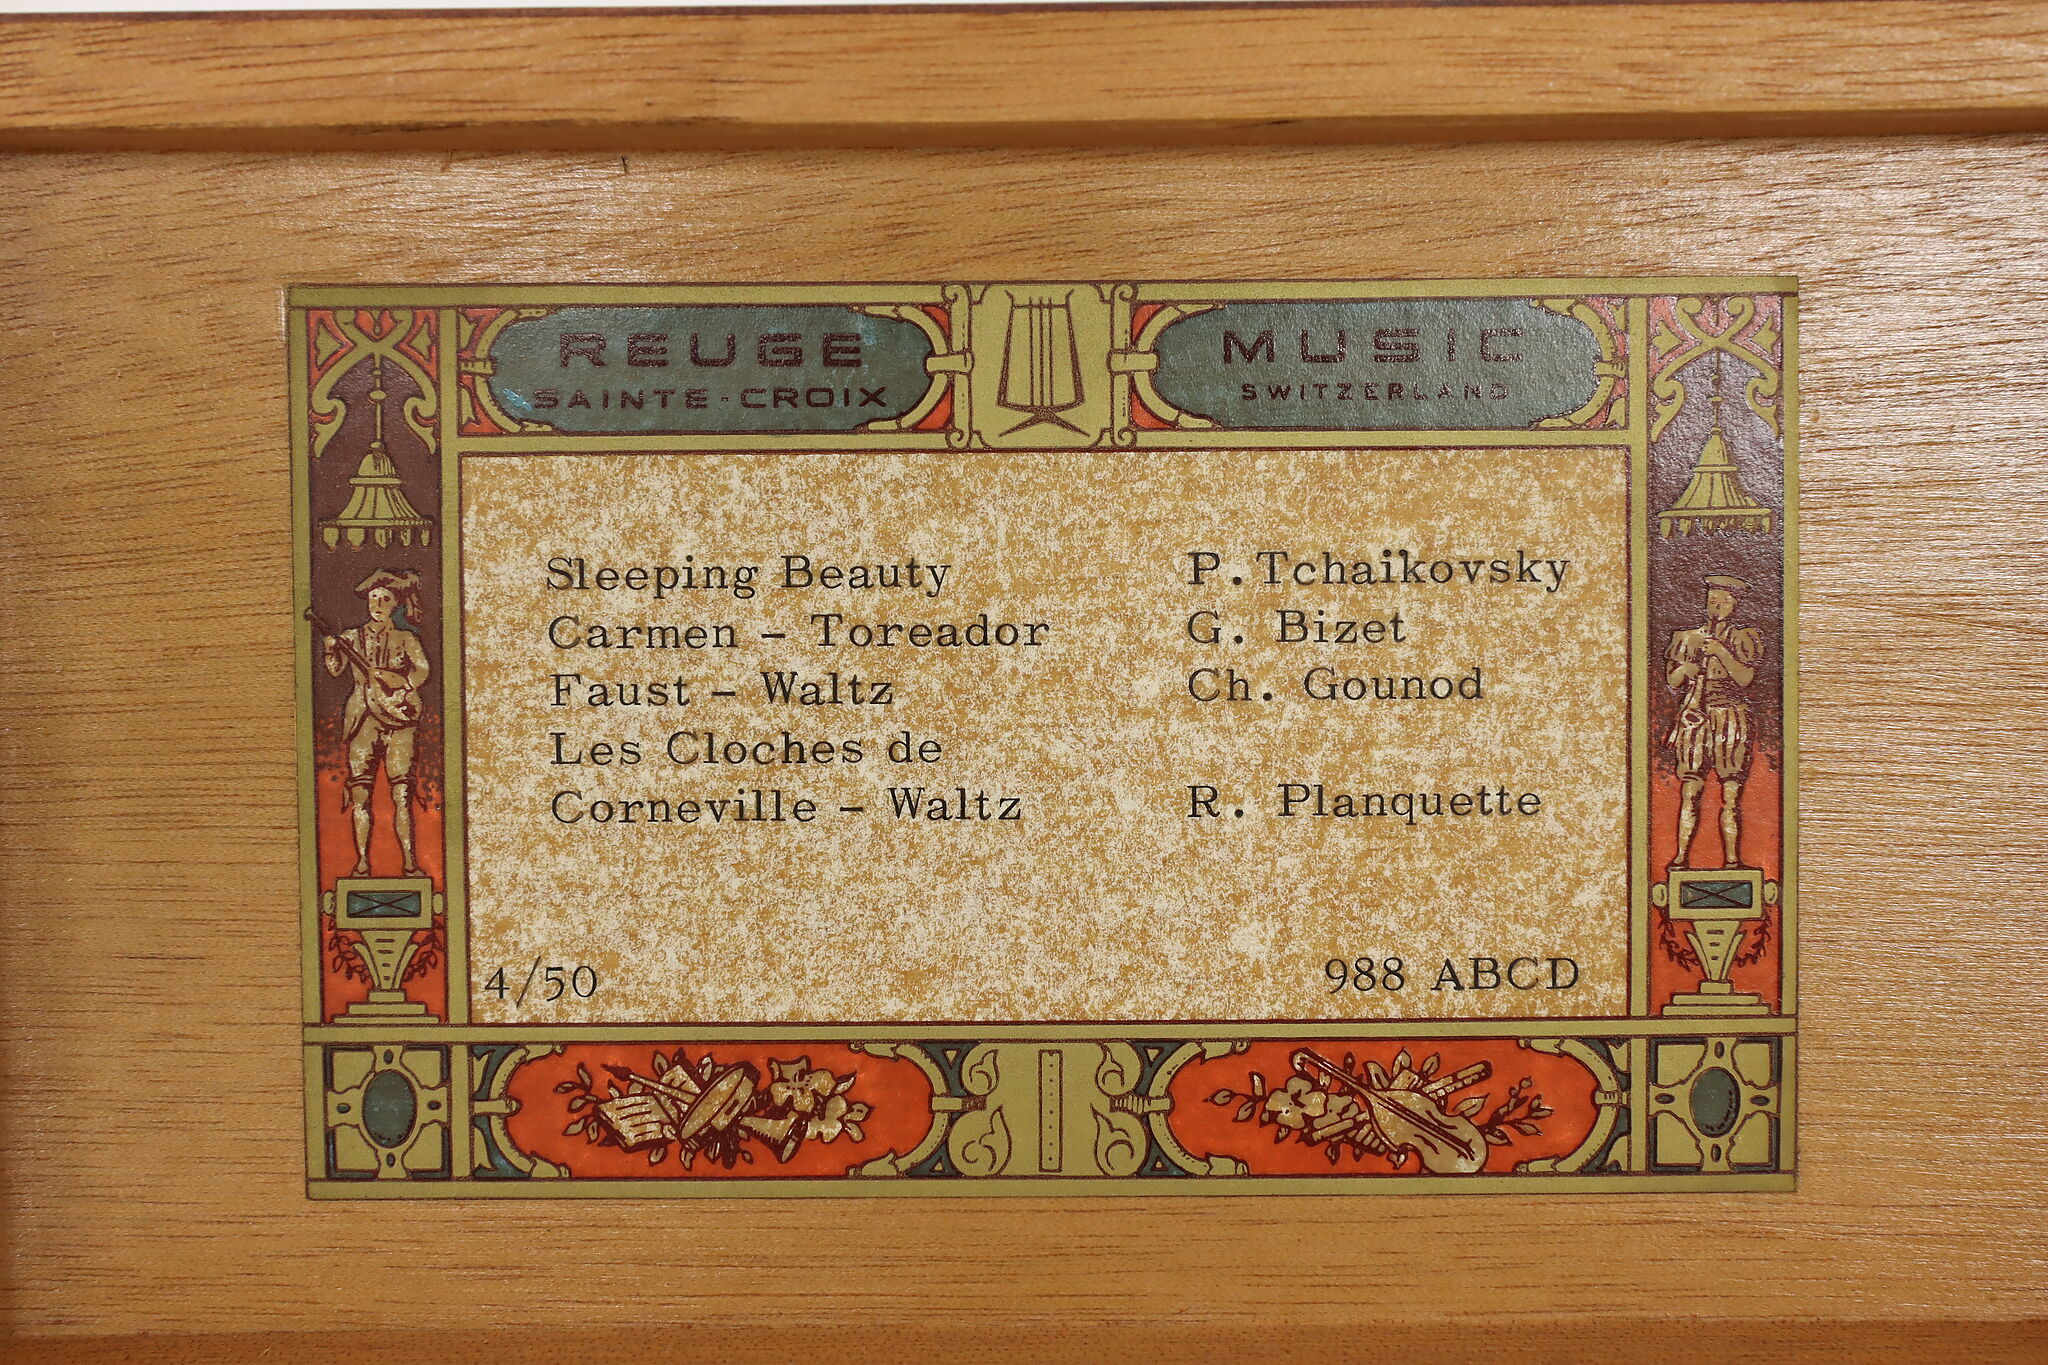 REUGE MUSIC
SAINTE-CROIX SWITZERLAND
Sleeping Beauty P. Tchaïkovsky
Carmen - Toreador G. Bizet
Faust - Waltz Ch. Gounod
Les Cloches de
Corneville - Waltz R. Planquette
4/50 988 ABCD